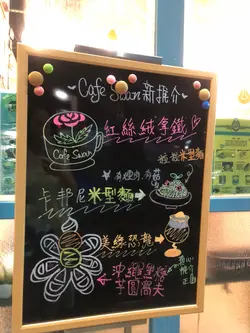 Cafe Swan 新推介
紅絲絨拿鐵
Cafe Swan
卡邦尼米型麵
美綠恐龍
沖繩黑糖
芋圓窩夫